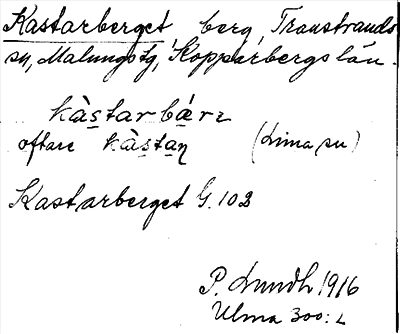 Kastarberget berg, Transtrands
sn, Malungs tg, Kopparbergs län.
kàs̲tarbǽrɩ
oftare kàs̲tan̥ (Lima sn)
Kastarberget G. 102
P. Lundh 1916
Ulma 300:2